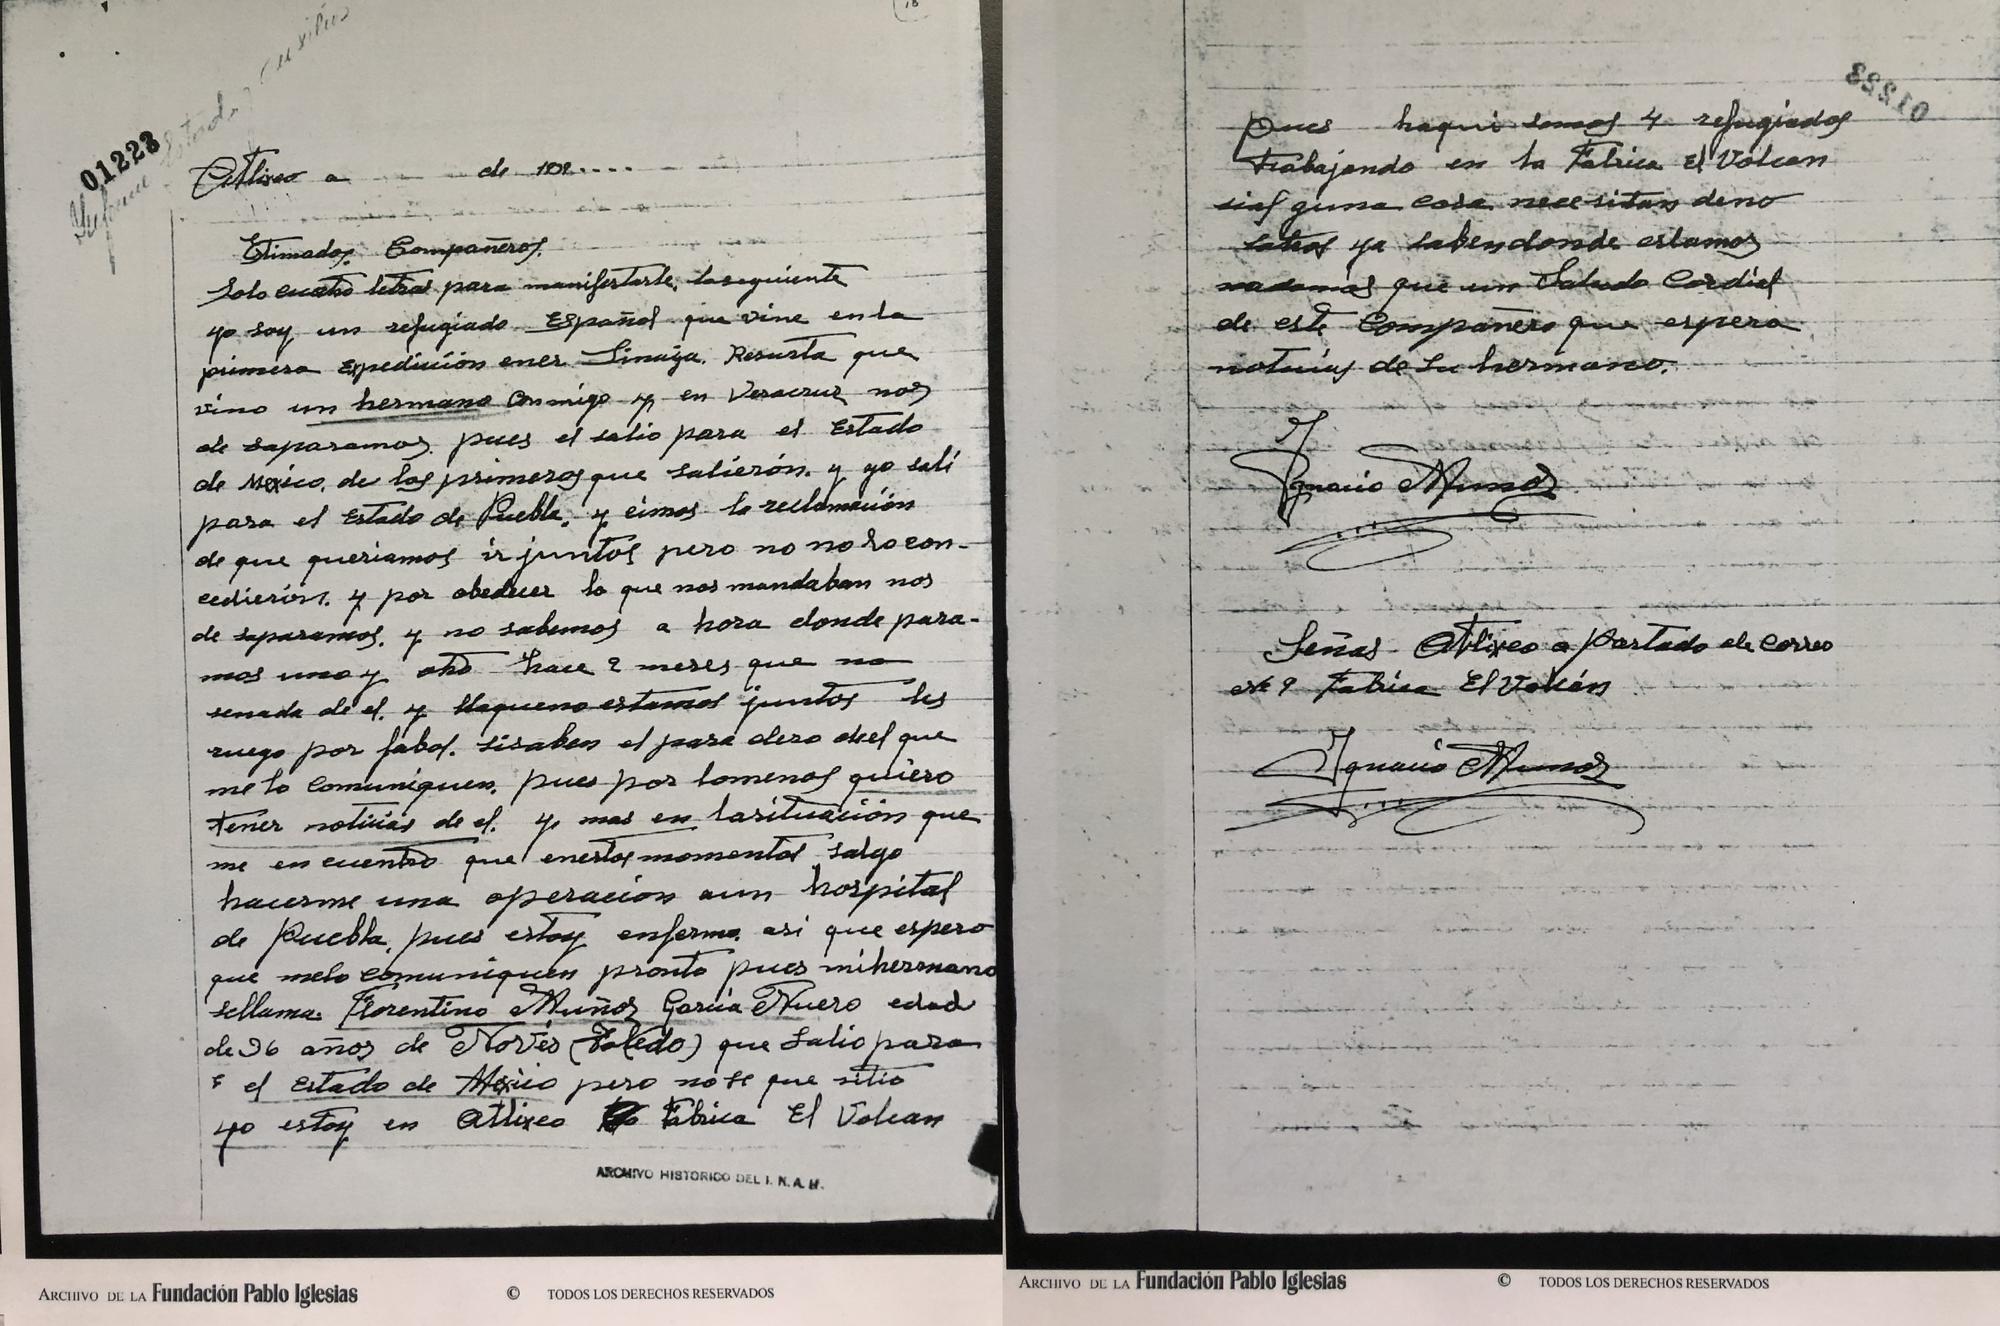 18
01223
Informe Estado y auxilios
Atlixco a de 193....
Estimados Compañeros.
Solo cuatro letras para manifestarle, loseguiente
yo soy un refugiado Español que vine en la
primera Expedición enel Sinaiya. Resurta que
vino un hermano Conmigo y en Veracruz nos
de saparamos. pues el salio para el Estado
de México. de los primeros que salierón. y yo salí
para el Estado de Puebla, y eimos la reclamación
de que queriamos ir juntos pero no no lo con-
cedierón. y por obedecer lo que nos mandaban nos
de saparamos. y no sabemos a hora donde para-
mos uno y otro hace 2 meses que no
senada de el. y llaqueno estamos juntos les
ruego por fabol. sisaben el para dero deel que
me lo Comuniquen. pues por lomenos quiero
tener noticias de el. y mas en lasituación que
me en cuentro que enestos momentos salgo
hacerme una operacion aun hospital
de Puebla, pues estoy enfermo. asi que espero
que melo Comuniquen pronto pues mihermano
sellama. Florentino Muñoz Garcia Nuero edad
de 36 años de Novés (Toledo) que Salio para
el Estado de Mexico pero no se que sitio
yo estoy en Atlixco Fabrica El Volcan
ARCHIVO HISTORICO DEL I. N. A. H.
ARCHIVO DE LA Fundación Pablo Iglesias © TODOS LOS DERECHOS RESERVADOS
01223
Pues haqui somos 4 refugiados
trabajando en la Fabrica El Volcan
sial guna cosa necesitan deno
sotros ya sabendonde estamos
nadamas que un Saludo Cordial
de este Compañero que espera
noticias de su hermano.
Ignacio Munoz
Señas Atlixco a partado de Correo
Nº 9 Fabrica El Volcán
Ignacio Munoz
ARCHIVO DE LA Fundación Pablo Iglesias © TODOS LOS DERECHOS RESERVADOS